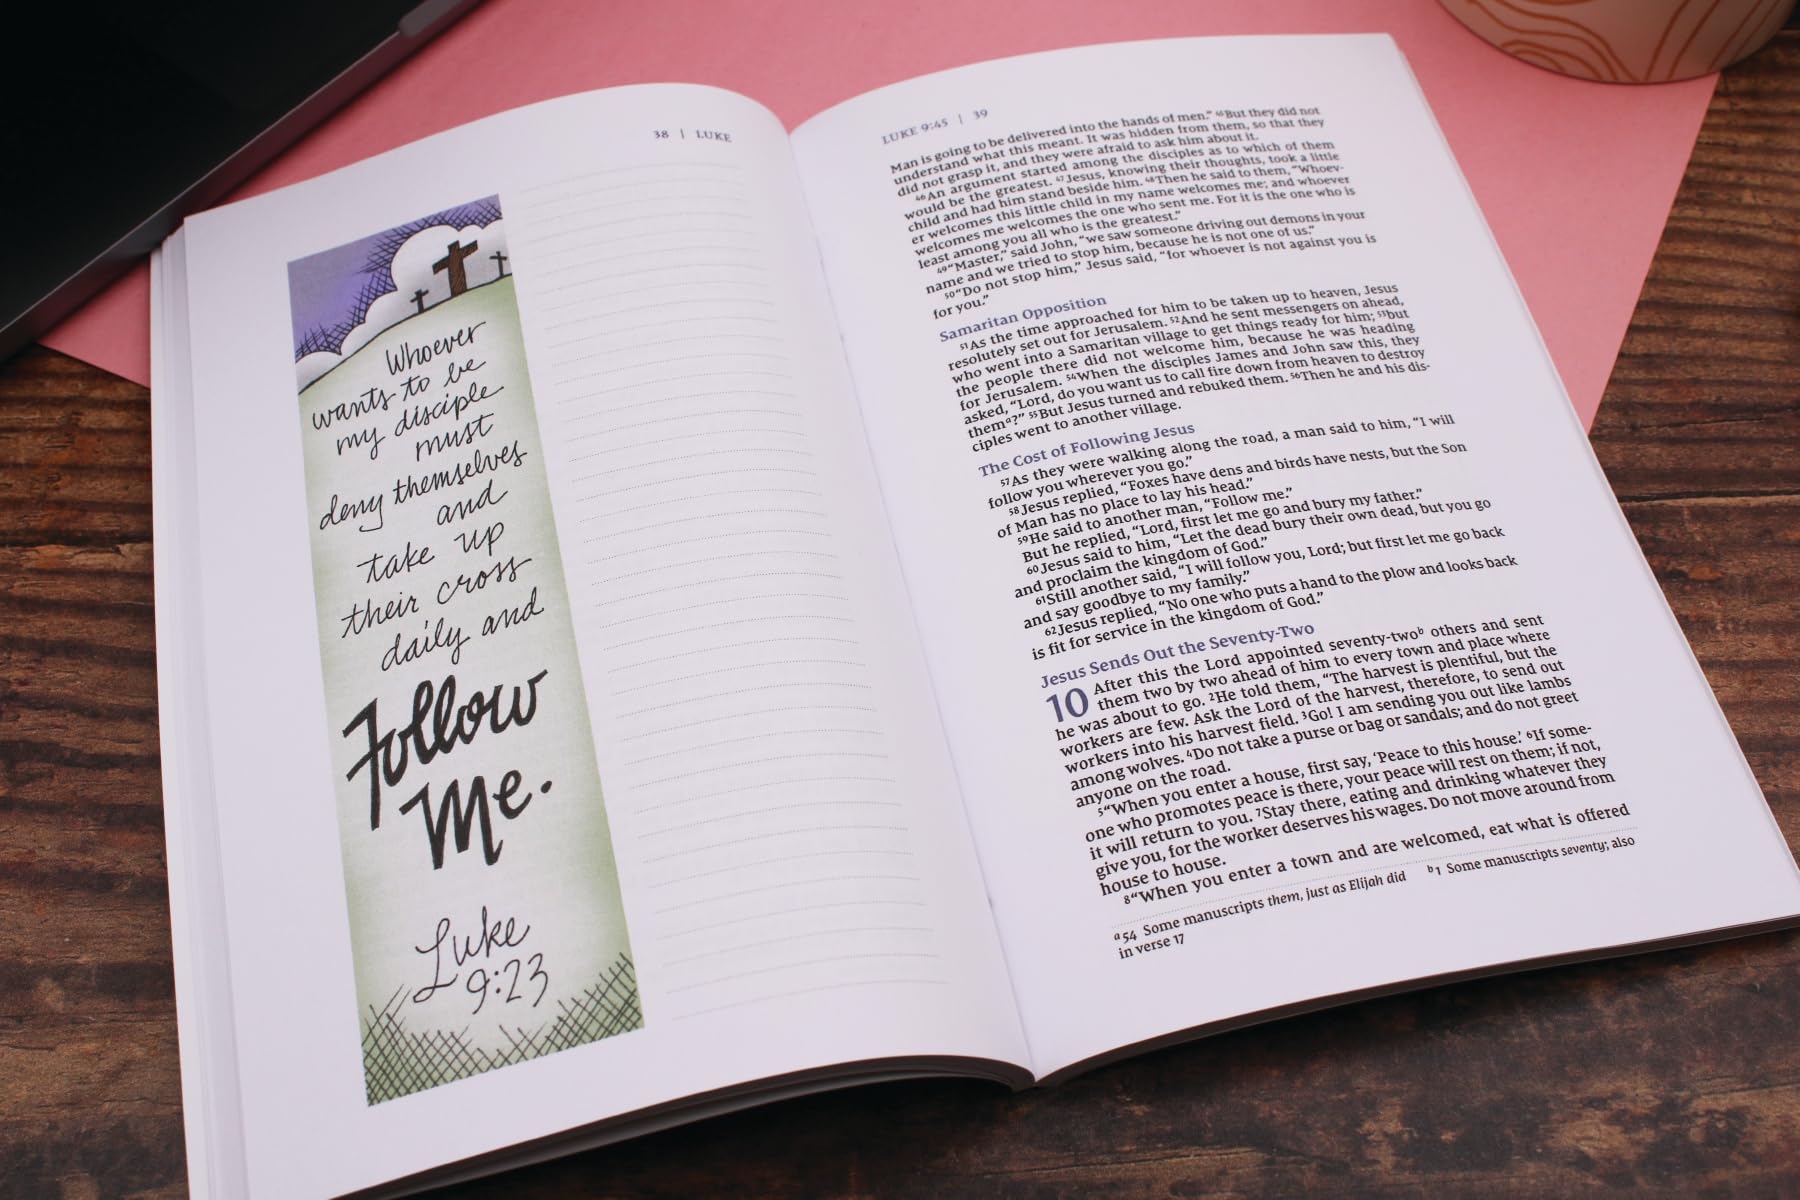 38 | LUKE
Whoever
wants to be
my disciple
must
deny themselves
and
take up
their cross
daily and
Follow
Me.
Luke
9:23
LUKE 9:45 | 39
Man is going to be delivered into the hands of men.” ⁴⁵But they did not
understand what this meant. It was hidden from them, so that they
did not grasp it, and they were afraid to ask him about it.
⁴⁶An argument started among the disciples as to which of them
would be the greatest. ⁴⁷Jesus, knowing their thoughts, took a little
child and had him stand beside him. ⁴⁸Then he said to them, “Whoev-
er welcomes this little child in my name welcomes me; and whoever
welcomes me welcomes the one who sent me. For it is the one who is
least among you all who is the greatest.”
⁴⁹“Master,” said John, “we saw someone driving out demons in your
name and we tried to stop him, because he is not one of us.”
⁵⁰“Do not stop him,” Jesus said, “for whoever is not against you is
for you.”
Samaritan Opposition
⁵¹As the time approached for him to be taken up to heaven, Jesus
resolutely set out for Jerusalem. ⁵²And he sent messengers on ahead,
who went into a Samaritan village to get things ready for him; ⁵³but
the people there did not welcome him, because he was heading
for Jerusalem. ⁵⁴When the disciples James and John saw this, they
asked, “Lord, do you want us to call fire down from heaven to destroy
themᵃ?” ⁵⁵But Jesus turned and rebuked them. ⁵⁶Then he and his dis-
ciples went to another village.
The Cost of Following Jesus
⁵⁷As they were walking along the road, a man said to him, “I will
follow you wherever you go.”
⁵⁸Jesus replied, “Foxes have dens and birds have nests, but the Son
of Man has no place to lay his head.”
⁵⁹He said to another man, “Follow me.”
But he replied, “Lord, first let me go and bury my father.”
⁶⁰Jesus said to him, “Let the dead bury their own dead, but you go
and proclaim the kingdom of God.”
⁶¹Still another said, “I will follow you, Lord; but first let me go back
and say goodbye to my family.”
⁶²Jesus replied, “No one who puts a hand to the plow and looks back
is fit for service in the kingdom of God.”
Jesus Sends Out the Seventy-Two
10 After this the Lord appointed seventy-twoᵇ others and sent
them two by two ahead of him to every town and place where
he was about to go. ²He told them, “The harvest is plentiful, but the
workers are few. Ask the Lord of the harvest, therefore, to send out
workers into his harvest field. ³Go! I am sending you out like lambs
among wolves. ⁴Do not take a purse or bag or sandals; and do not greet
anyone on the road.
⁵“When you enter a house, first say, ‘Peace to this house.’ ⁶If some-
one who promotes peace is there, your peace will rest on them; if not,
it will return to you. ⁷Stay there, eating and drinking whatever they
give you, for the worker deserves his wages. Do not move around from
house to house.
⁸“When you enter a town and are welcomed, eat what is offered
ᵃ54 Some manuscripts them, just as Elijah did ᵇ1 Some manuscripts seventy; also
in verse 17